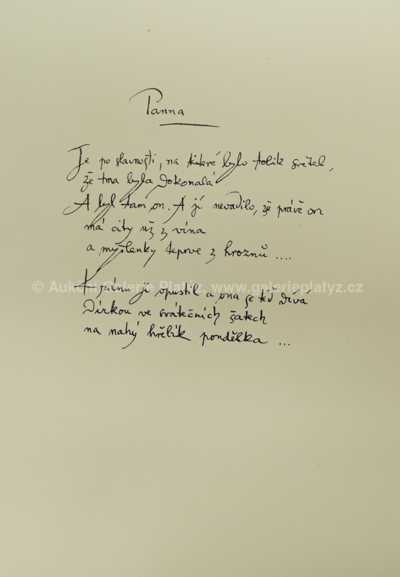 Panna
Je po slavnosti, na které bylo tolik světel,
že tma byla dokonalá
A byl tam on. A jí nevadilo, že právě on
má city už z vína
a myšlenky teprve z hroznů ....
© Aukční Galerie Platýz, www.galerieplatyz.cz
K ránu ji opustil a ona se teď dívá
dírkou ve svátečních šatech
na nahý hřebík pondělka ...